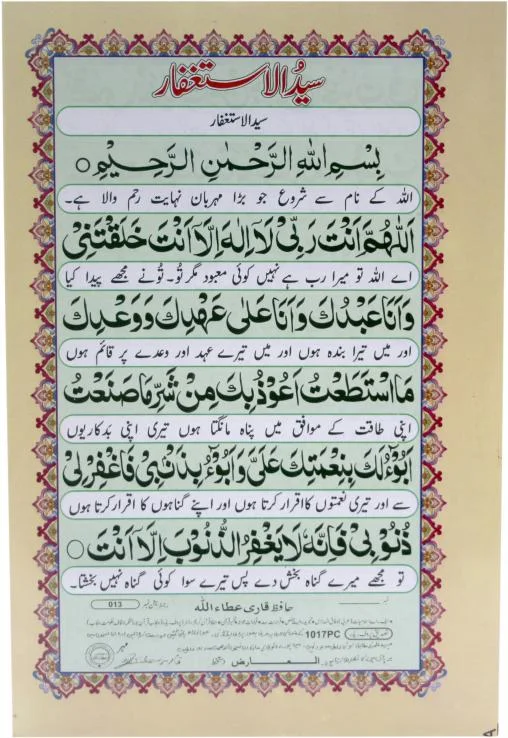 سیدُالاستغفار
سیدالاستغفار
بِسْمِ اللهِ الرَّحْمٰنِ الرَّحِیْمِ ○
اللہ کے نام سے شروع جو بڑا مہربان نہایت رحم والا ہے۔
اَللّٰهُمَّ اَنْتَ رَبِّیْ لَا اِلٰهَ اِلَّا اَنْتَ خَلَقْتَنِیْ
اے اللہ تو میرا رب ہے نہیں کوئی معبود مگر تُو۔ تُو نے مجھے پیدا کیا
وَ اَنَا عَبْدُكَ وَ اَنَا عَلٰی عَهْدِكَ وَ وَعْدِكَ
اور میں تیرا بندہ ہوں اور میں تیرے عہد اور وعدے پر قائم ہوں
مَا اسْتَطَعْتُ اَعُوْذُ بِكَ مِنْ شَرِّ مَا صَنَعْتُ
اپنی طاقت کے موافق میں پناہ مانگتا ہوں تیری اپنی بدکاریوں
اَبُوْٓءُ لَكَ بِنِعْمَتِكَ عَلَیَّ وَ اَبُوْٓءُ بِذَنْۢبِیْ فَاغْفِرْ لِیْ
سے اور تیری نعمتوں کا اقرار کرتا ہوں اور اپنے گناہوں کا اقرار کرتا ہوں
ذُنُوْبِیْ فَاِنَّهٗ لَا یَغْفِرُ الذُّنُوْبَ اِلَّا اَنْتَ ○
تو مجھے میرے گناہ بخش دے پس تیرے سوا کوئی گناہ نہیں بخشتا۔
حافظ قاری عطاء اللہ
013
1017PC
مہر
العارض